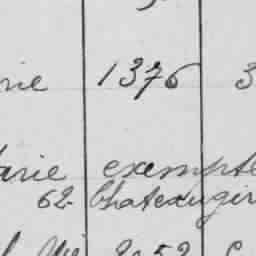 rie 1376 3
arie exempte
62 Chateaugir
2052